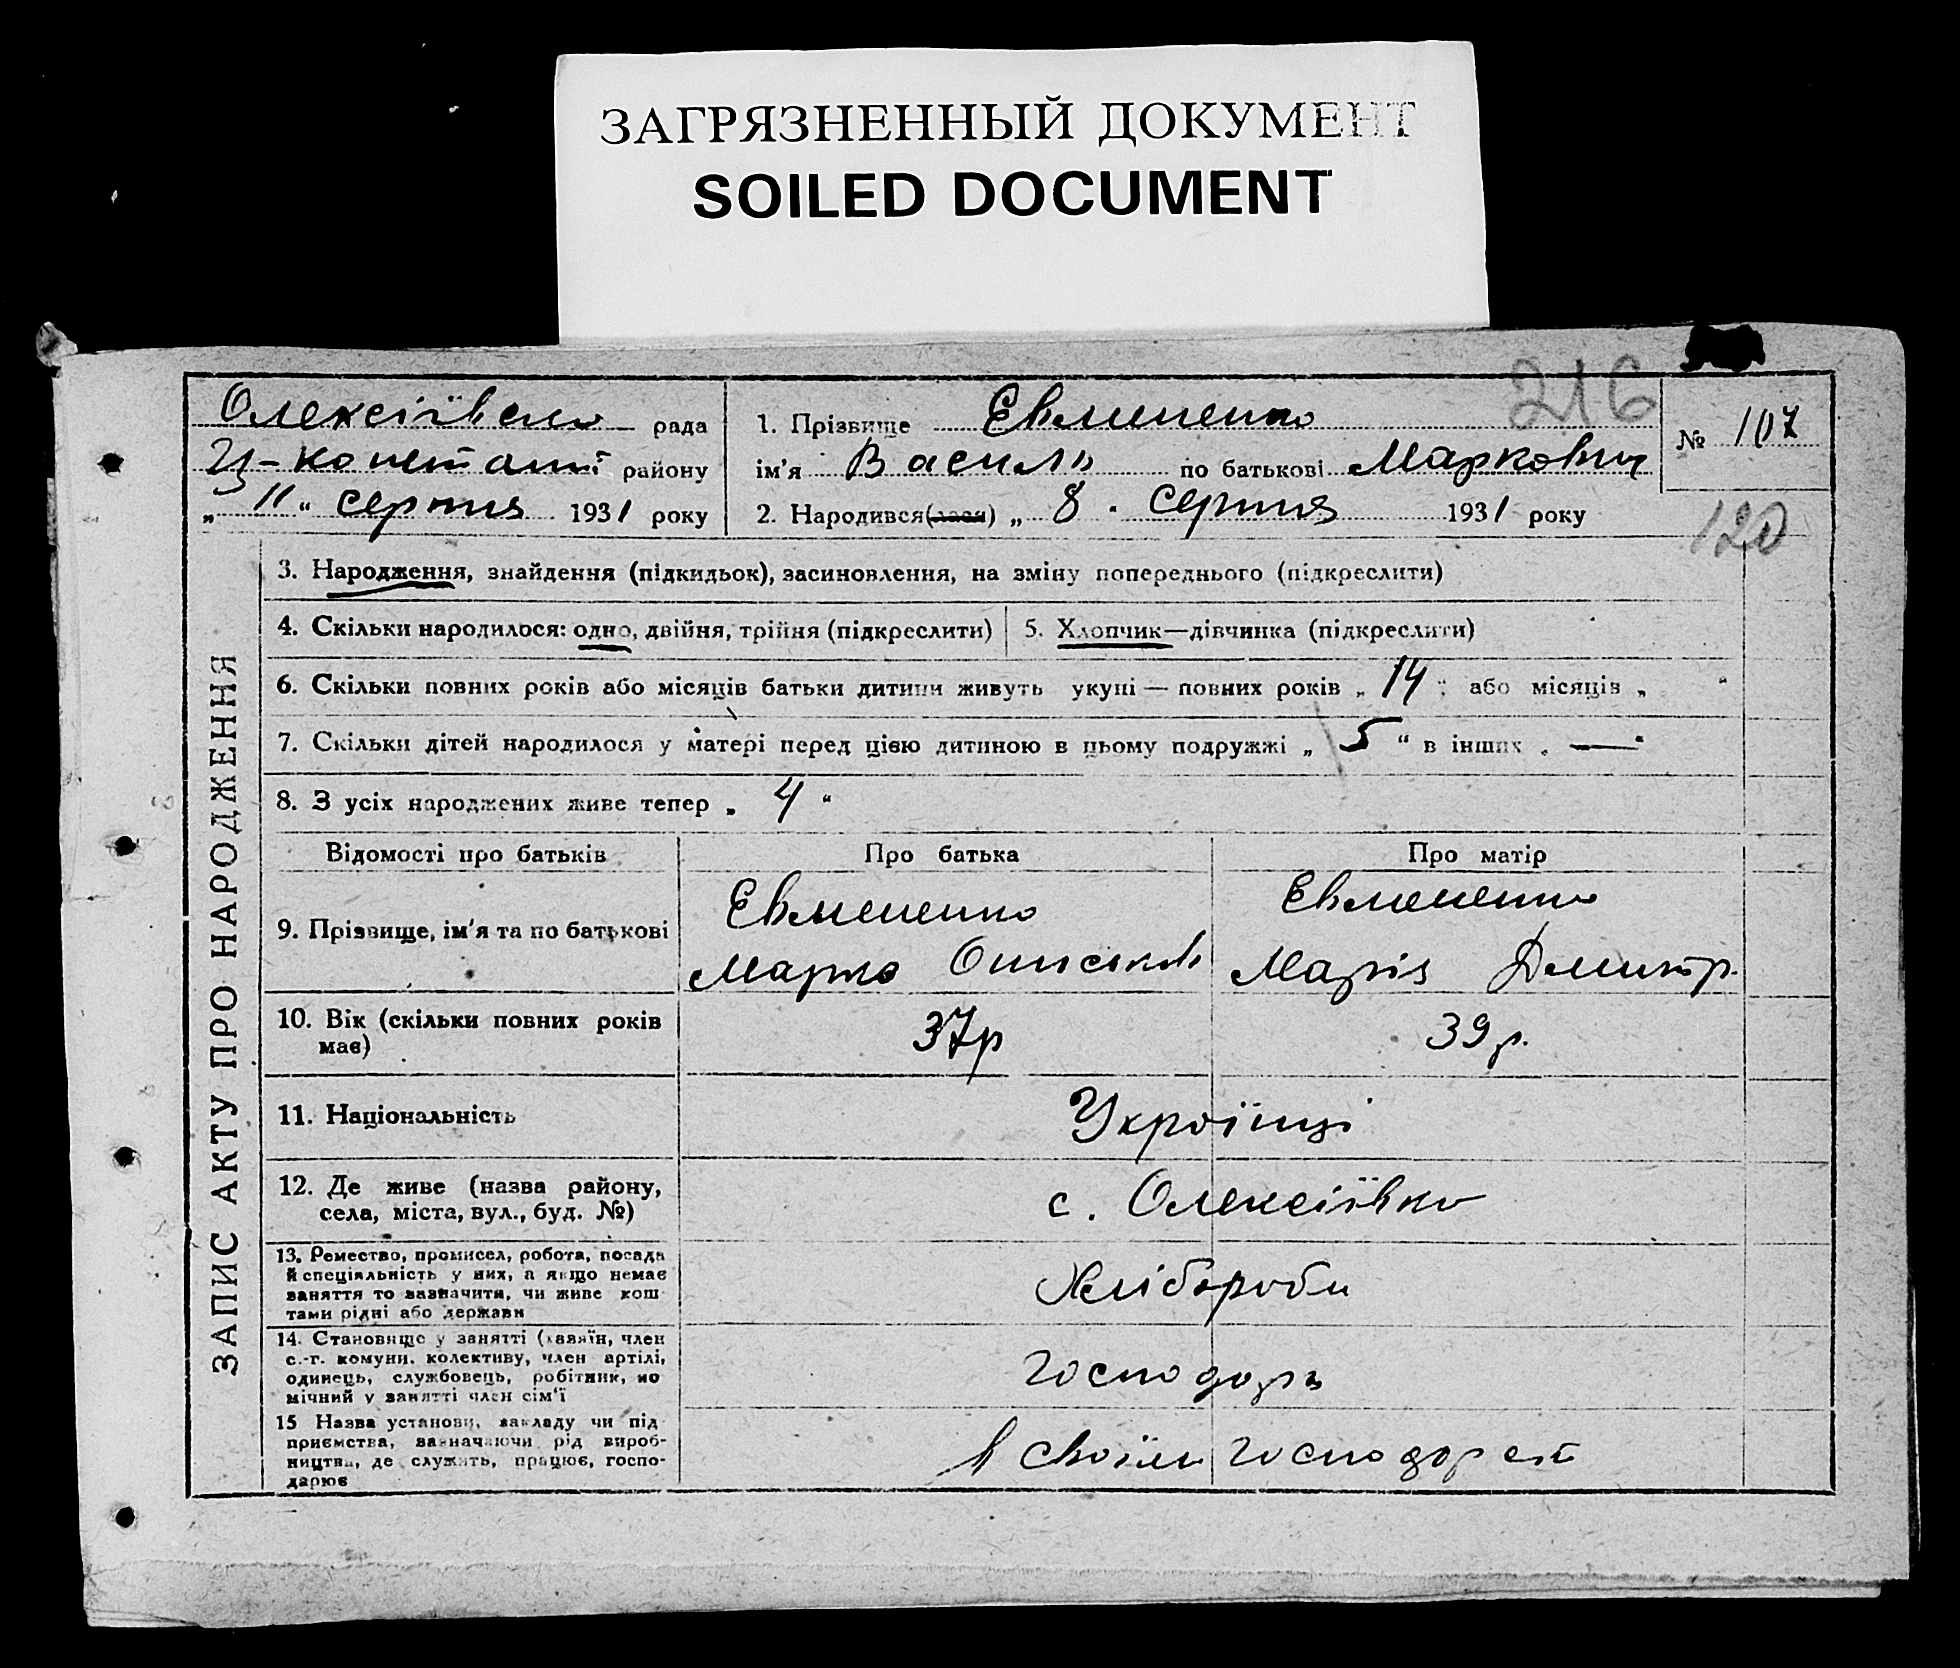 ЗАГРЯЗНЕННЫЙ ДОКУМЕНТ
SOILED DOCUMENT
216
Олексіївська рада
району
„ 11 “ серпня 1931 року
1. Прізвище Євмененко
ім’я Василь по батькові Маркович
2. Народився(лася) „ 8 . серпня 1931 року
№ 107
120
ЗАПИС АКТУ ПРО НАРОДЖЕННЯ
3. Народження, знайдення (підкидьок), засиновлення, на зміну попереднього (підкреслити)
4. Скільки народилося: одно, двійня, трійня (підкреслити)
5. Хлопчик—дівчинка (підкреслити)
6. Скільки повних років або місяців батьки дитини живуть укупі — повних років „ 14 “ або місяців „ “
7. Скільки дітей народилося у матері перед цією дитиною в цьому подружжі „ 5 “ в інших „ — “
8. З усіх народжених живе тепер „ 4 “
Відомості про батьків
Про батька
Про матір
9. Прізвище, ім’я та по батькові
Євмененко
Марко
Євмененко
Марія Дмитр.
10. Вік (скільки повних років
має)
37р
39р.
11. Національність
Українці
12. Де живе (назва району,
села, міста, вул., буд. №)
с. Олексіївка
13. Ремество, промисел, робота, посада
й спеціяльність у них, а якщо немає
заняття то зазначити, чи живе кош
тами рідні або держави
Хлібороби
14. Становище у занятті (хазяїн, член
с.-г. комуни, колективу, член артілі,
одинець, службовець, робітник, по
мічний у занятті член сім’ї
Господарі
15 Назва установи, закладу чи під
приємства, зазначаючи рід вироб-
ництва, де служить, працює, госпо-
дарює
В своїм господарст